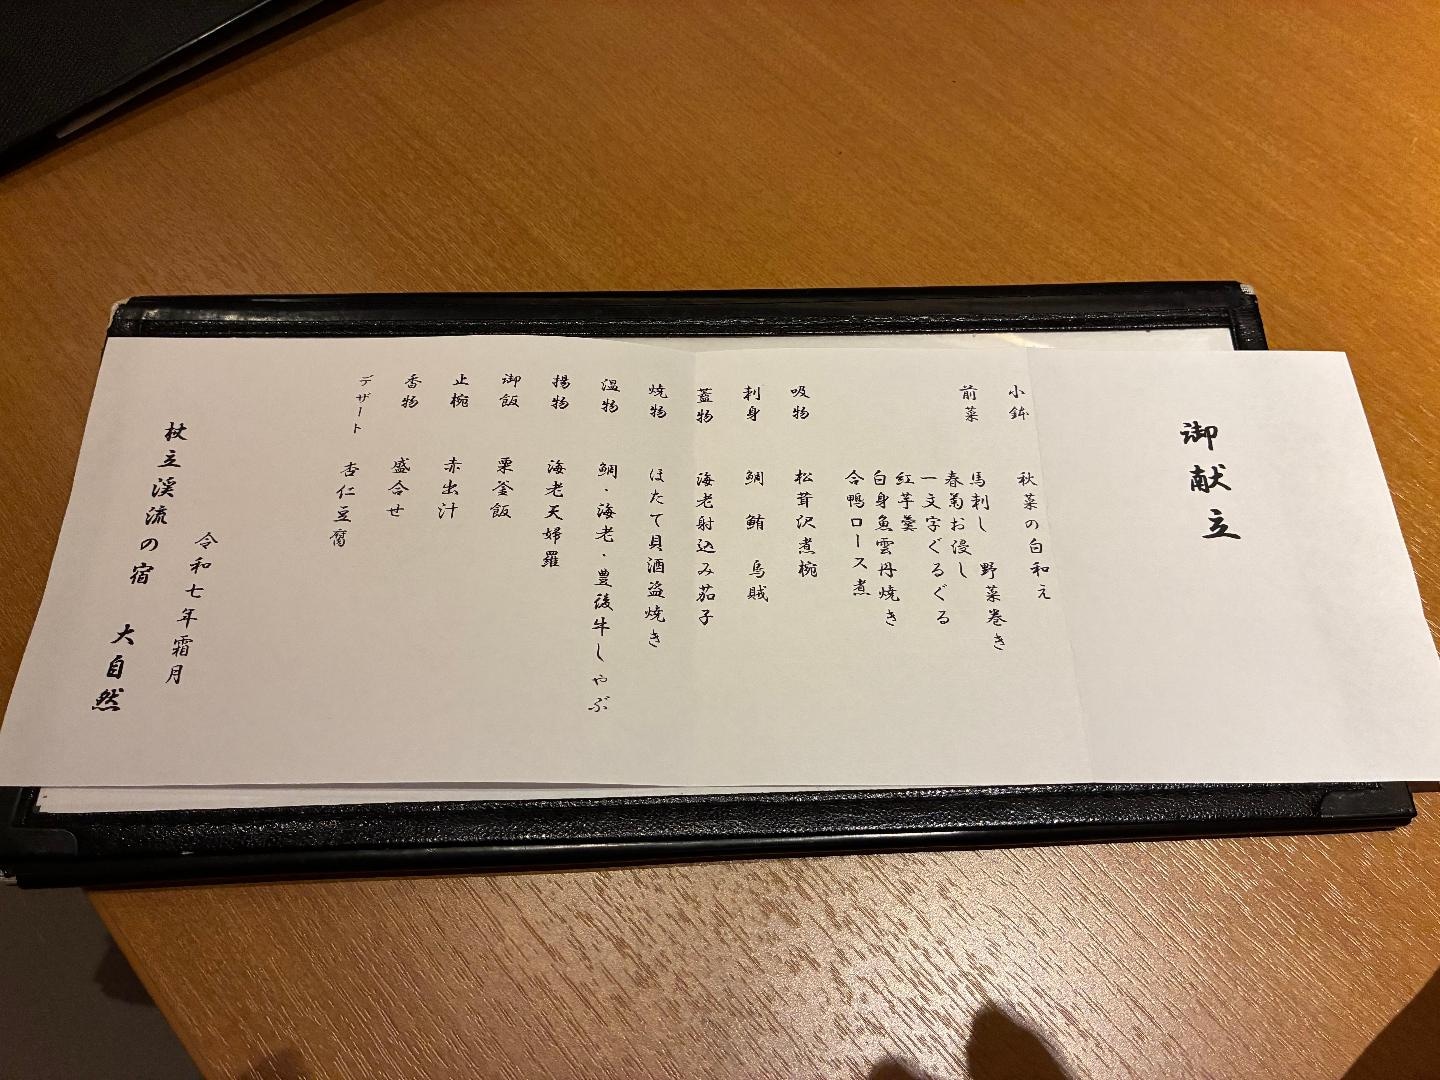 御献立
小鉢　秋菜の白和え
前菜　馬刺し　野菜巻き
春菊お浸し
一文字ぐるぐる
紅芋羹
白身魚雲丹焼き
合鴨ロース煮
吸物　松茸沢煮椀
刺身　鯛　鮪　烏賊
蓋物　海老射込み茄子
焼物　ほたて貝酒盗焼き
温物　鯛・海老・豊後牛しゃぶ
揚物　海老天婦羅
御飯　栗釜飯
止椀　赤出汁
香物　盛合せ
デザート　杏仁豆腐
令和七年霜月
杖立渓流の宿　大自然